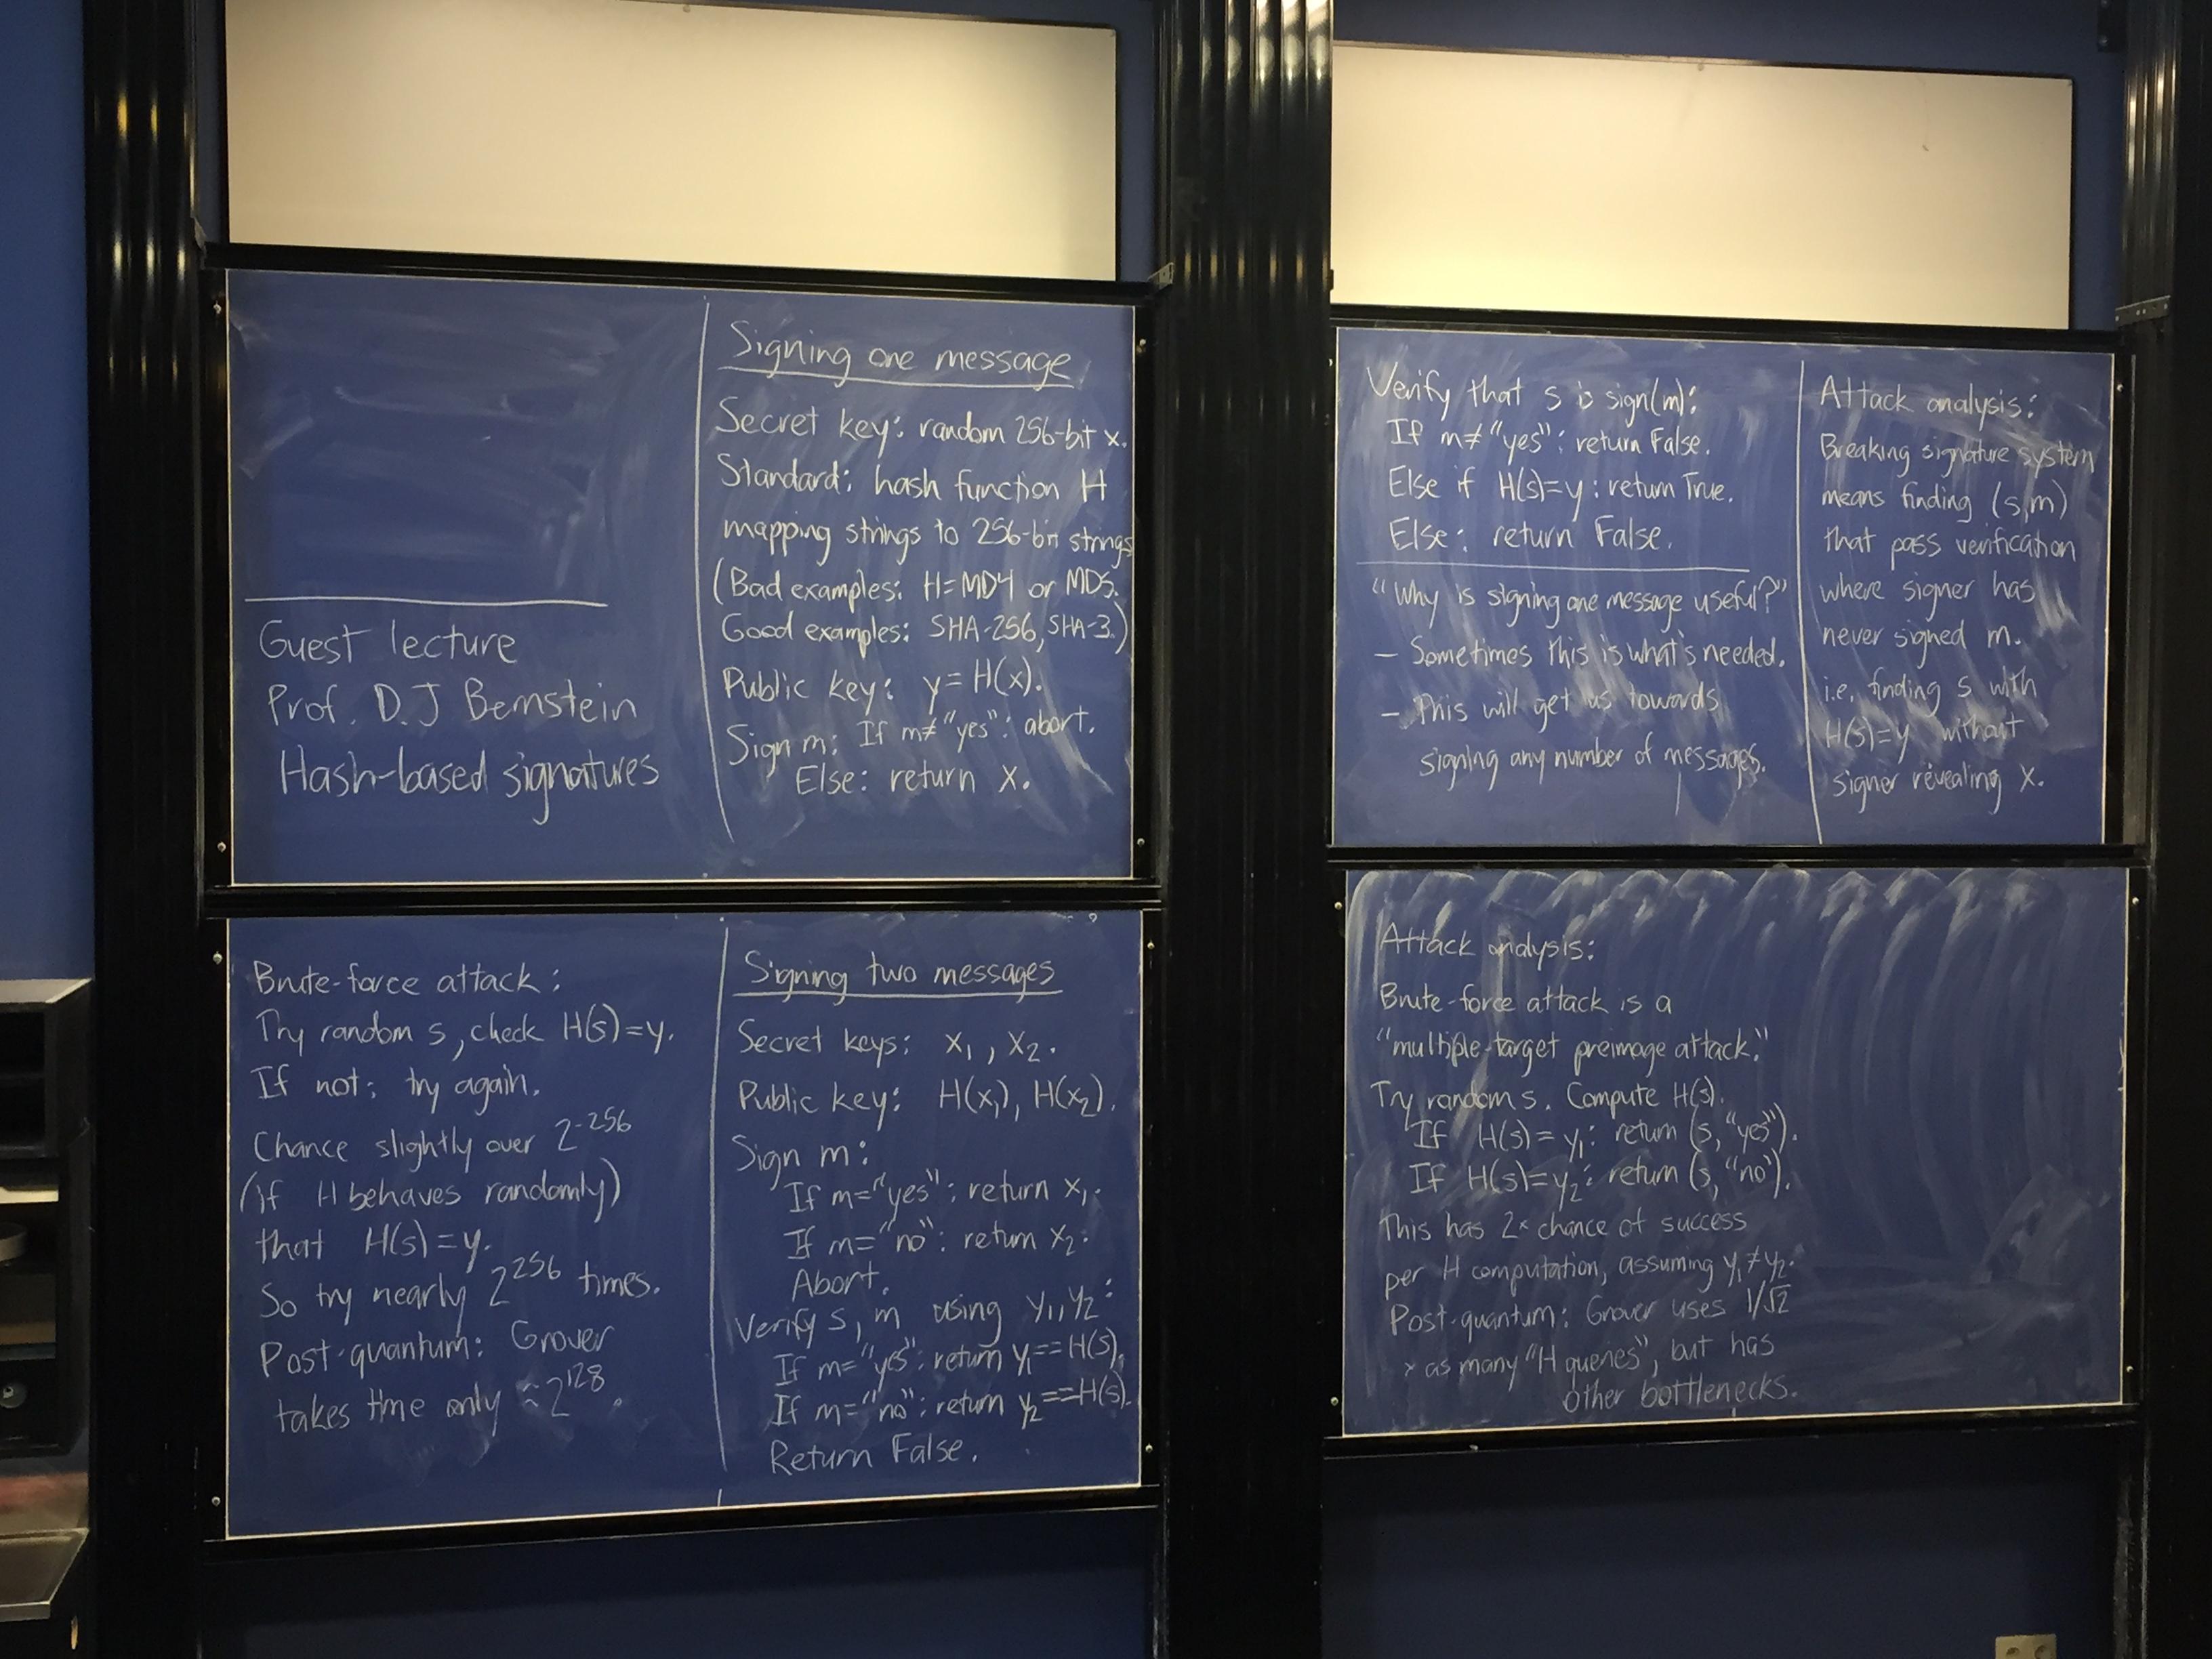 Guest lecture
Prof. D.J Bernstein
Hash-based signatures
Signing one message
Secret key: random 256-bit x.
Standard: hash function H
mapping strings to 256-bit strings
(Bad examples: H=MD4 or MD5.
Good examples: SHA-256, SHA-3.)
Public key: y=H(x).
Sign m: If m≠"yes": abort.
Else: return x.
Verify that s is sign(m):
If m≠"yes": return False.
Else if H(s)=y: return True.
Else: return False.
"Why is signing one message useful?"
– Sometimes this is what's needed.
– This will get us towards
signing any number of messages.
Attack analysis:
Breaking signature system
means finding (s,m)
that pass verification
where signer has
never signed m.
i.e. finding s with
H(s)=y without
signer revealing x.
Brute-force attack:
Try random s, check H(s)=y.
If not: try again.
Chance slightly over 2^-256
(if H behaves randomly)
that H(s)=y.
So try nearly 2^256 times.
Post-quantum: Grover
takes time only ≈2^128.
Signing two messages
Secret keys: x₁, x₂.
Public key: H(x₁), H(x₂).
Sign m:
If m="yes": return x₁.
If m="no": return x₂.
Abort.
Verify s, m using y₁, y₂:
If m="yes": return y₁==H(s).
If m="no": return y₂==H(s).
Return False.
Attack analysis:
Brute-force attack is a
"multiple-target preimage attack."
Try random s. Compute H(s).
If H(s)=y₁: return (s, "yes").
If H(s)=y₂: return (s, "no").
This has 2× chance of success
per H computation, assuming y₁≠y₂.
Post-quantum: Grover uses 1/√2
× as many "H queries", but has
other bottlenecks.